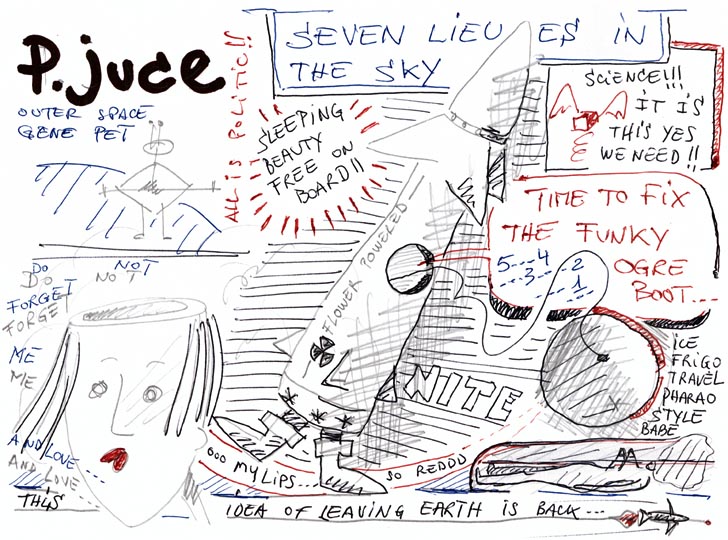 P.juce
SEVEN LIEUES IN
THE SKY
OUTER SPACE
GENE PET
ALL IS POLITIC!!
SLEEPING
BEAUTY
FREE ON
BOARD!!
SCIENCE!!!
IT IS
THIS YES
WE NEED!!
TIME TO FIX
THE FUNKY
OGRE
BOOT...
5...4
...3...2
...1
FLOWER POWERED
NITE
DO NOT
DO NOT
FORGET
FORGET
ME
ME
AND LOVE...
AND LOVE
THIS
ooo MY LIPS...
SO REDDD
ICE
FRIGO
TRAVEL
PHARAO
STYLE
BABE
IDEA OF LEAVING EARTH IS BACK...